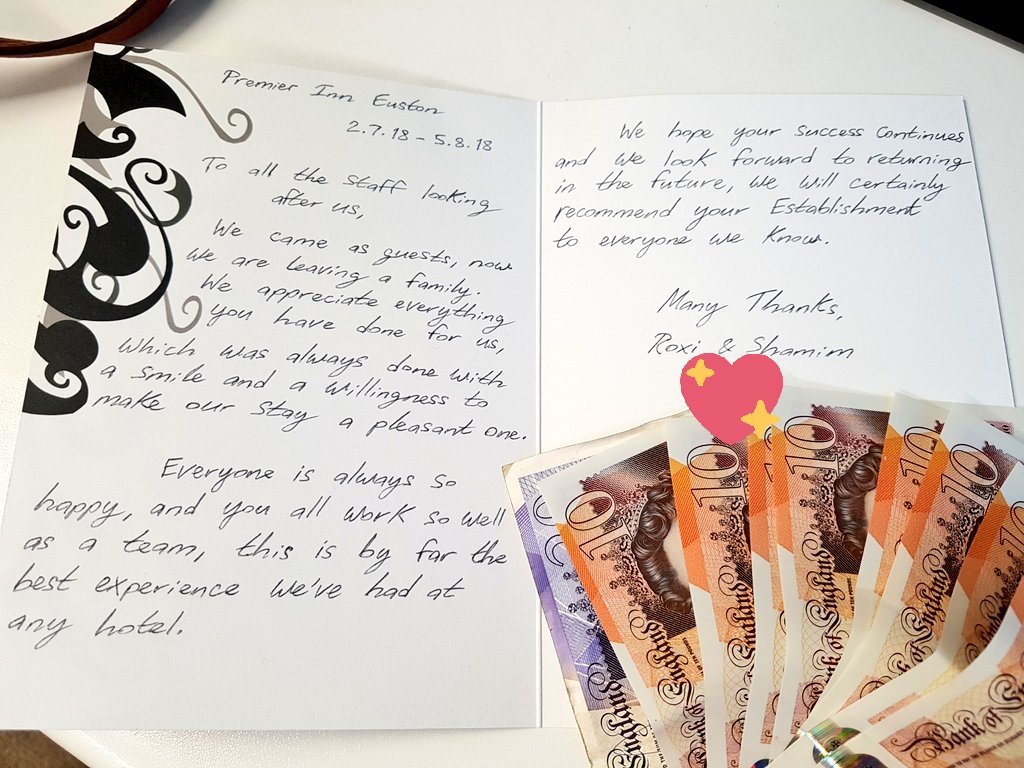 Premier Inn Euston
2.7.18 - 5.8.18
To all the staff looking
after us,
We came as guests, now
we are leaving a family.
We appreciate everything
you have done for us,
which was always done with
a smile and a willingness to
make our stay a pleasant one.
Everyone is always so
happy, and you all work so well
as a team, this is by far the
best experience we've had at
any hotel.
We hope your success continues
and we look forward to returning
in the future, we will certainly
recommend your Establishment
to everyone we know.
Many Thanks,
Roxi & Shamim
10
England
10
England
10
Bank of England
10
10
Bank of England
Bank of